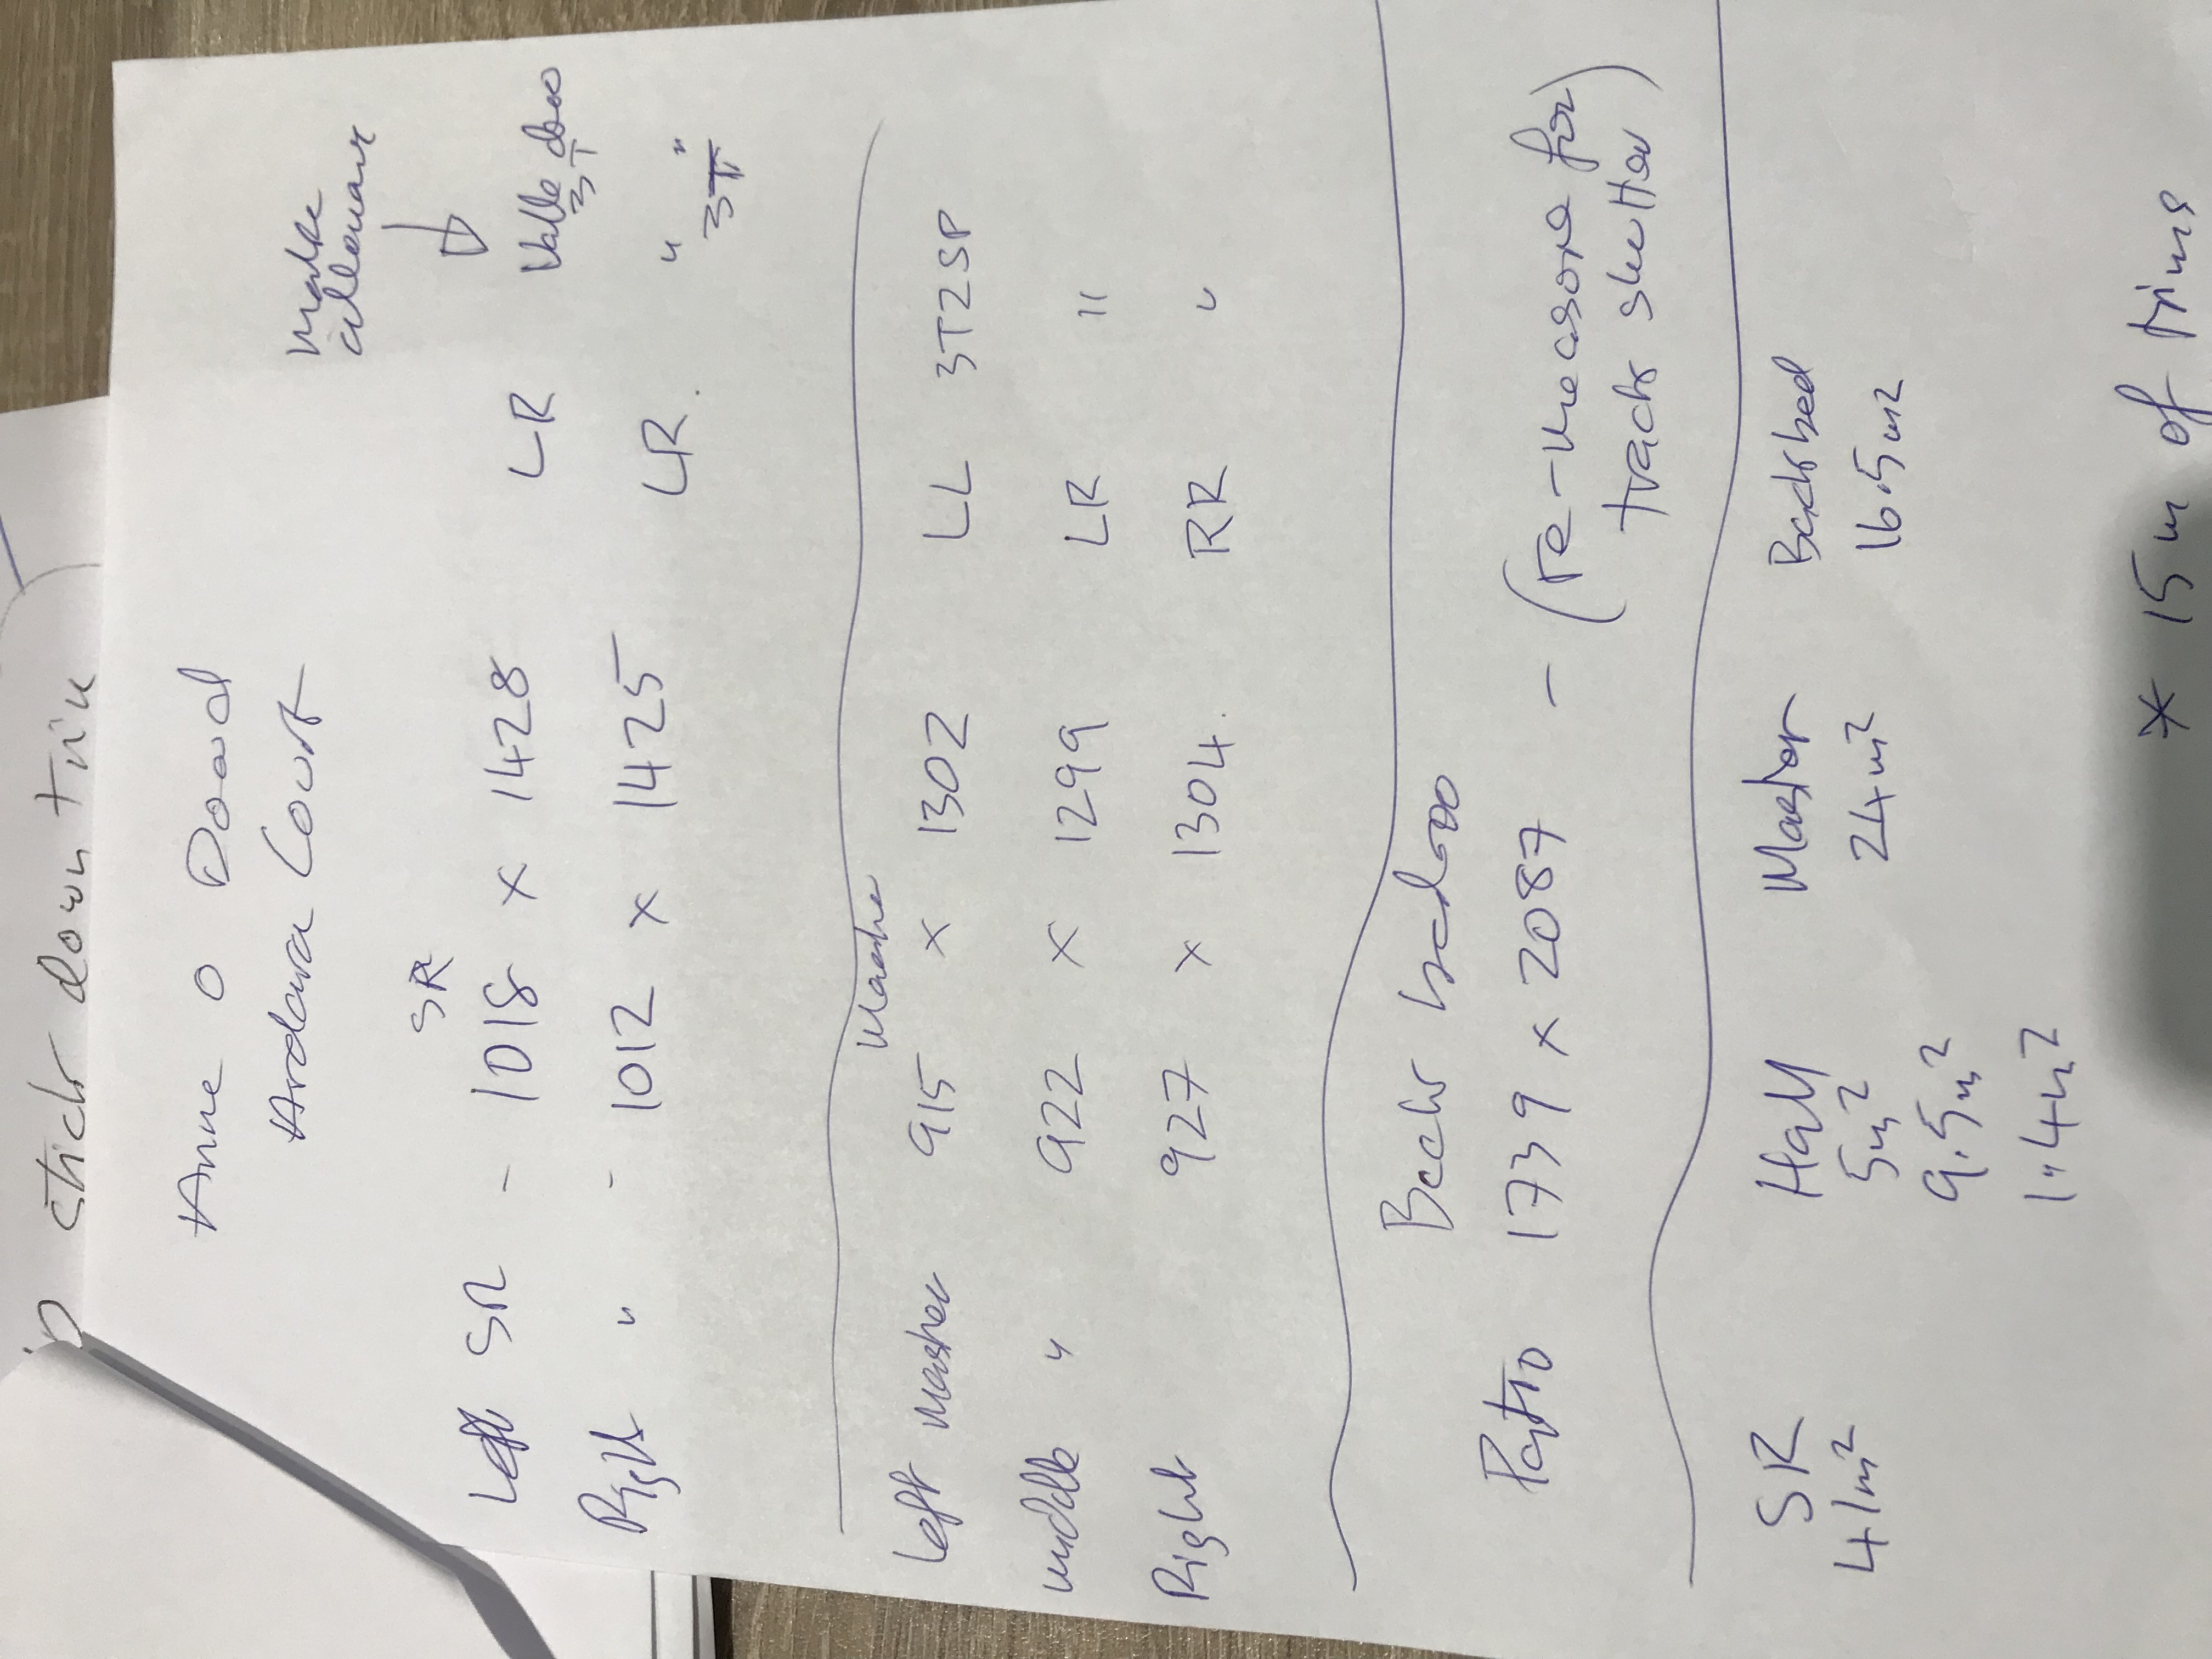 stick down trim
Anne O Dowd
Ardara Court
Make
allowance
SR
Left SR - 1018 x 1428 LR
3T
Right " - 1012 x 1425 LR. " "
3T
Master
Left Master 915 x 1302 LL 3T2SP
middle " 922 x 1299 LR "
Right 927 x 1304. RR "
Back
Patio 1739 x 2087 - (re-measure for
track shutter)
SR Hall Master Backbed
41m2 5m2 24m2 16.5m2
9.5m2
1.4m2
* 15m of trims